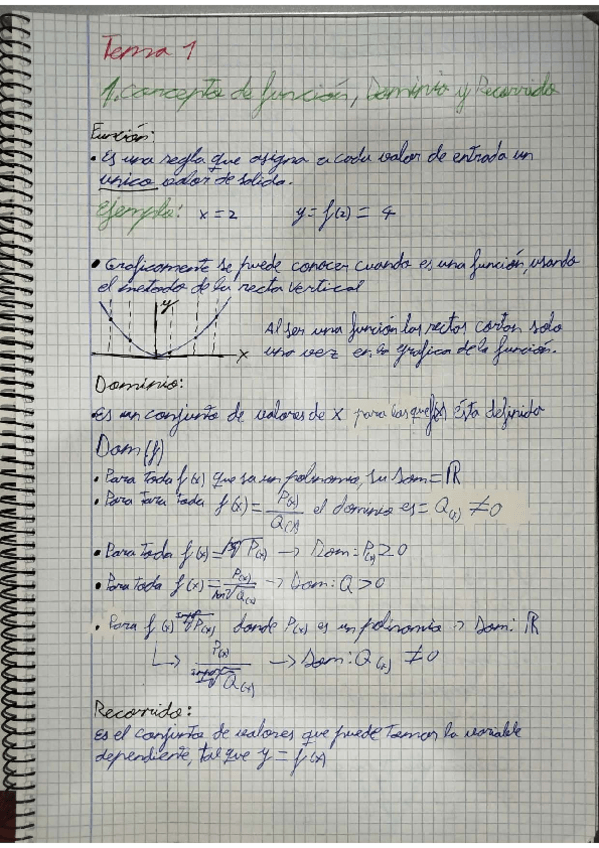 Tema 1
1. Concepto de función, Dominio y Recorrido
Función:
• Es una regla que asigna a cada valor de entrada un
unico valor de salida.
Ejemplo: x = 2 y = f(2) = 4
• Graficamente se puede conocer cuando es una función, usando
el metodo de la recta vertical
y
x
Al ser una función las rectas cortan solo
una vez en la grafica de la función.
Dominio:
Es un conjunto de valores de x para los que f(x) ésta definido
Dom(f)
• Para toda f(x) que sea un polinomio, su Dom = ℝ
• Para toda f(x) = P(x)/Q(x) el dominio es = Q(x) ≠ 0
• Para toda f(x) = √P(x) → Dom: P(x) ≥ 0
• Para toda f(x) = P(x)/√Q(x) → Dom: Q > 0
• Para f(x) √P(x) donde P(x) es un polinomio → Dom: ℝ
↳ P(x)/√Q(x) → Dom: Q(x) ≠ 0
Recorrido:
Es el conjunto de valores que puede tomar la variable
dependiente, tal que y = f(x)